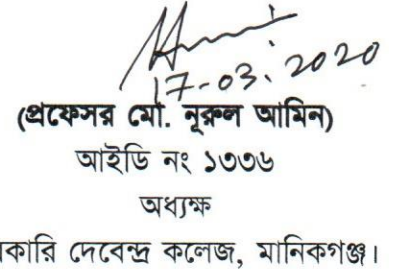 17-03.2020
(প্রফেসর মো. নূরুল আমিন)
আইডি নং ১৩৩৬
অধ্যক্ষ
কারি দেবেন্দ্র কলেজ, মানিকগঞ্জ।